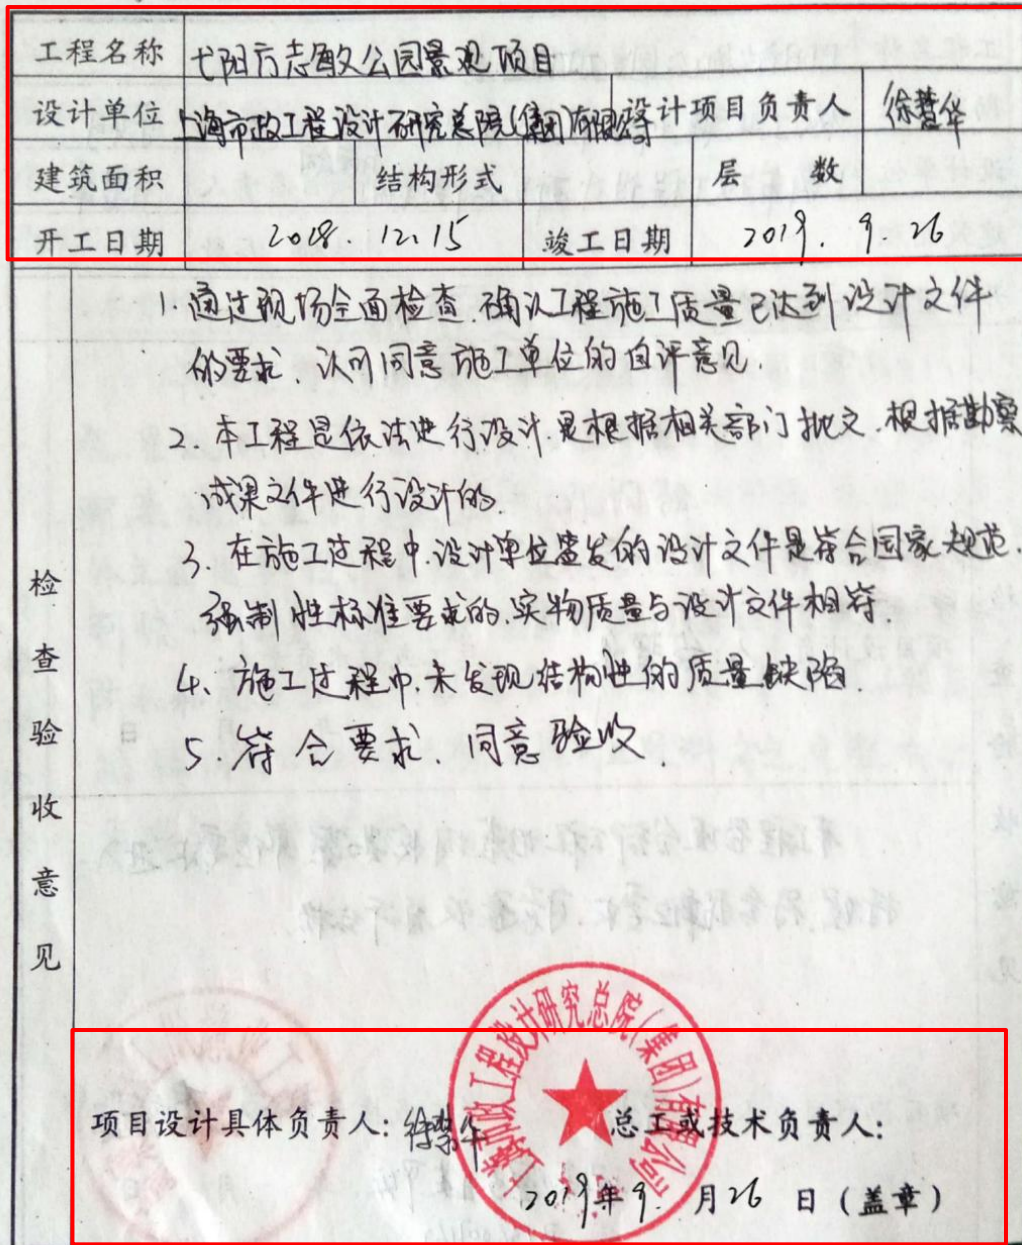 工程名称 弋阳方志敏公园景观项目
设计单位 上海市政工程设计研究总院(集团)有限公司 设计项目负责人 徐慧华
建筑面积 结构形式 层数
开工日期 2018.12.15 竣工日期 2019.9.26
检查验收意见
1.通过现场全面检查.确认工程施工质量已达到设计文件
的要求、认可同意施工单位的自评意见.
2.本工程是依法进行设计.是根据相关部门批文.根据勘察
成果文件进行设计的.
3.在施工过程中.设计单位签发的设计文件是符合国家规范.
强制性标准要求的.实物质量与设计文件相符.
4、施工过程中.未发现结构性的质量缺陷.
5.符合要求.同意验收.
上海市政工程设计研究总院(集团)有限公司
项目设计具体负责人:徐慧华 总工或技术负责人:
2019年9.月26日(盖章)